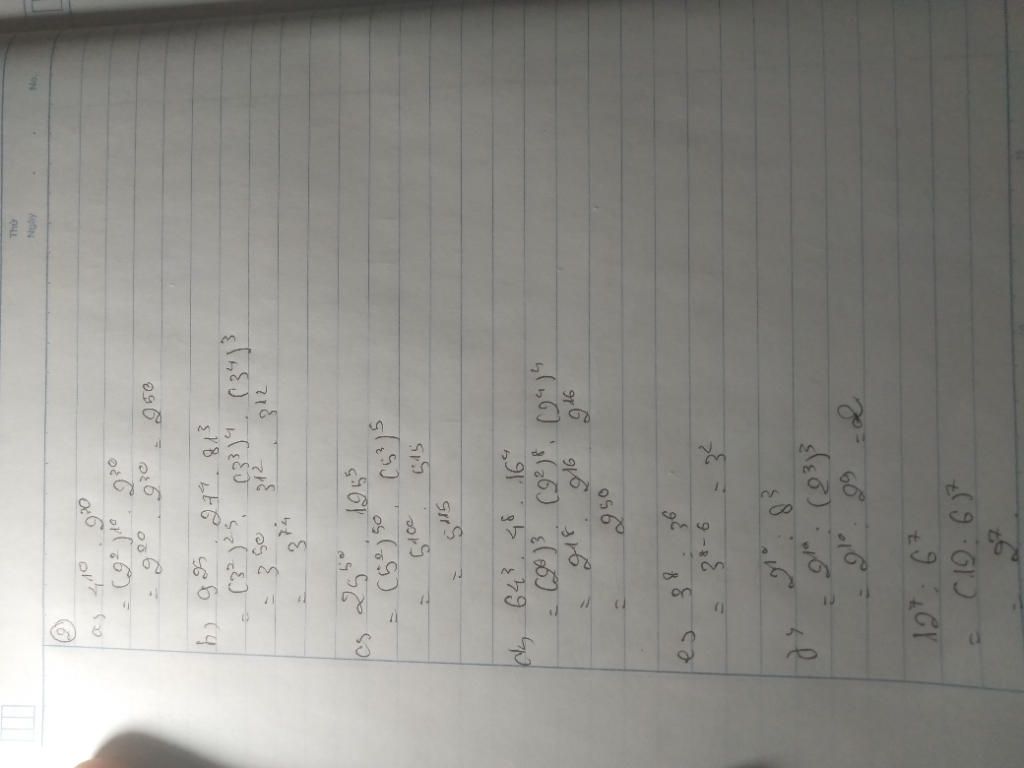 Thứ
Ngày
No.
②
a, 4¹⁰ . 2³⁰
= (2²)¹⁰ . 2³⁰
= 2²⁰ . 2³⁰ = 2⁵⁰
b, 9²⁵ . 27⁴ . 81³
= (3²)²⁵ . (3³)⁴ . (3⁴)³
= 3⁵⁰ . 3¹² . 3¹²
= 3⁷⁴
c, 25⁵⁰ . 125⁵
= (5²)⁵⁰ . (5³)⁵
= 5¹⁰⁰ . 5¹⁵
= 5¹¹⁵
d, 64³ . 4⁸ . 16⁴
= (2⁶)³ . (2²)⁸ . (2⁴)⁴
= 2¹⁸ . 2¹⁶ . 2¹⁶
= 2⁵⁰
e, 3⁸ : 3⁶
= 3⁸⁻⁶ = 3²
2¹⁰ : 8³
= 2¹⁰ : (2³)³
= 2¹⁰ : 2⁹ = 2
12⁷ : 6⁷
= (12 : 6)⁷
= 2⁷